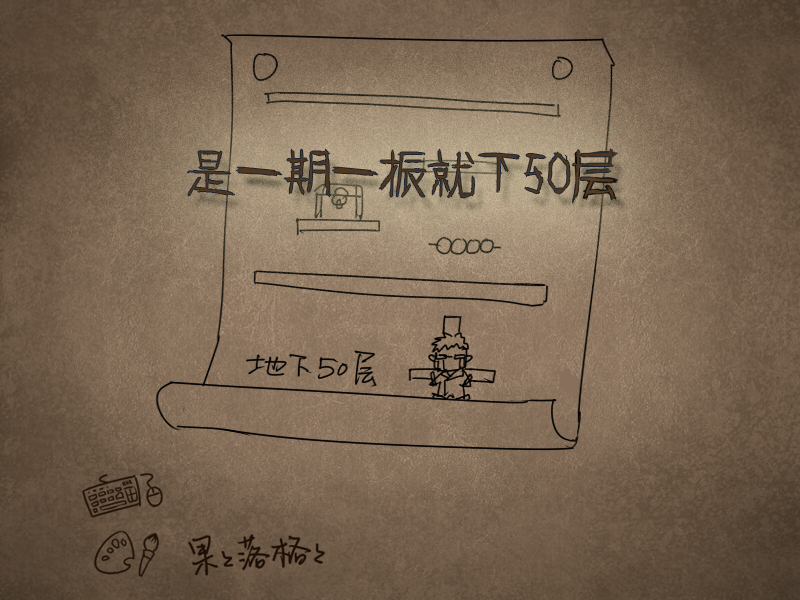 是一期一振就下50层
地下50层
果と落格と